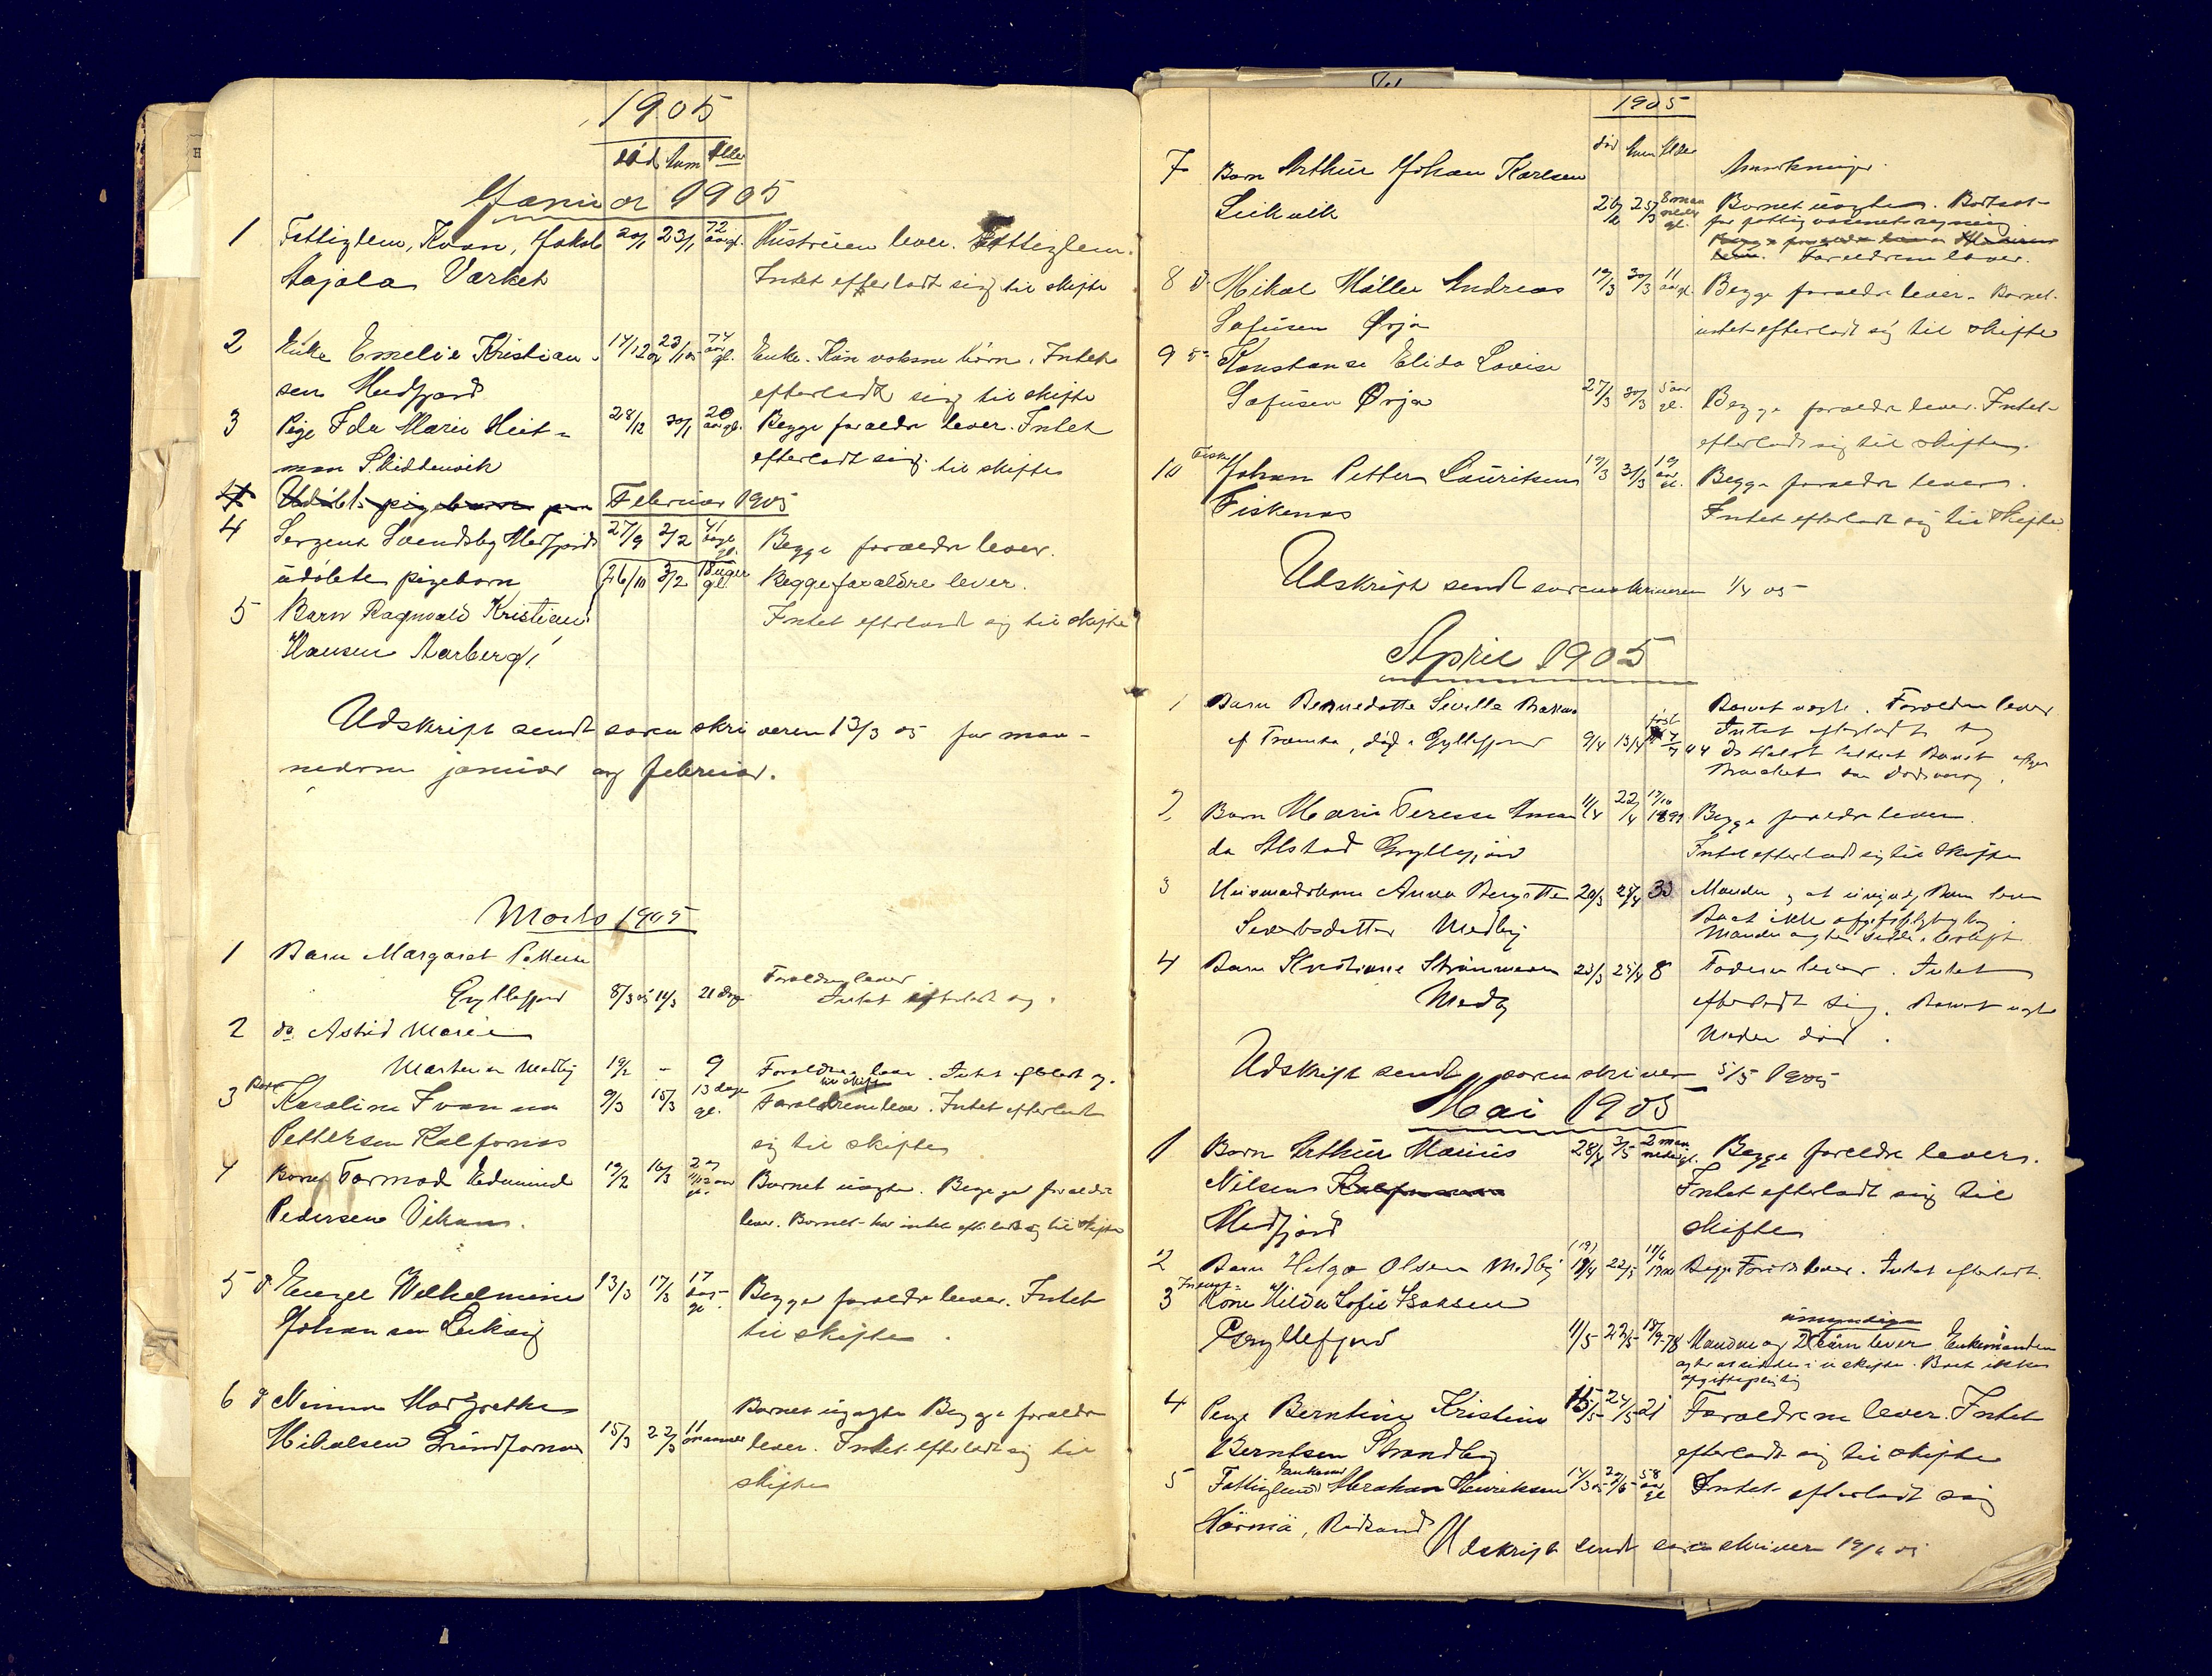 1905
død Anm Alder
Januar 1905
1 Fattiglem, Kvæn, Jakob 20/1 23/1 72 aar gl. Hustruen lever. Fattiglem.
Aajala Værket Intet efterladt sig til skifte
2 Enke Emelie Kristian- 17/12 04 23/1 05 74 aar gl. Enke. Kun voksne børn. Intet
sen Medfjord efterladt sig til skifte
3 Pige Ida Marie Heit- 28/12 30/1 20 aar gl. Begge forældre lever. Intet
man Skittenvik efterladt sig til skifte
Februar 1905
4 Sergent Svendsby Medfjords 27/9 2/2 Begge forældre lever.
udøbte pigebarn
5 Barn Ragnvald Kristian 26/10 3/2 Begge forældre lever.
Hansen Aarberg Intet efterladt sig til skifte
Udskrift sendt sorenskriveren 13/3 05 for maa-
nederne januar og februar.
Marts 1905
1 Barn Margaret Pettersen Forældre lever
Gryllefjord 8/3 05 14/3 21 dage Intet efterladt sig.
2 do Astrid Marie
Martensen Medby 19/2 - 9 Forældre lever. Intet efterladt sig.
til skifte
3 Barn Karoline Ivanna 9/3 15/3 13 dage gl. Forældrene lever. Intet efterladt
Pettersen Kalfarnes sig til skifte
4 Barnet Tormod Edmund 19/2 16/3 Barnet uægte. Begge forældre
Pedersen Vikan. lever. Barnet har intet efterladt sig til skifte
5 d. Enzel Vilhelmine 13/3 17/3 17 Begge forældre lever. Intet
Johansen Leikvig til skifte.
6 d Nimna Margrethe Barnet uægte Begge forældre
Mikalsen Grundfarnes 15/3 22/3 11 lever. Intet efterladt sig til
skifte
1905
død Anm Alder Anmerkninger.
7 Barn Arthur Johan Karlsen 8 maaneder gl. Barnet uægte. Bortsat
Leikvik 26/2 25/3 for fattigvæsenets regning
Forældrene lever.
8 d. Mikal Møller Andreas 19/3 30/3 11 aar gl. Begge forældre lever. Barnet
Sofusen Ørja intet efterladt sig til skifte
9 Konstanse Elida Lovise
Sofusen Ørja 27/3 30/3 5 aar gl. Begge forældre lever. Intet
efterladt sig til skifte.
10 Fisker Johan Petter Lauritsen 19/3 31/3 19 aar gl. Begge forældre lever.
Fiskenes Intet efterladt sig til skifte
Udskrift sendt sorenskriveren 1/4 05
April 1905
1 Barn Bernedotte Sevelle Barnet uægte. Forældre lever
af Tromsø, død i Gryllefjord 9/4 13/4 Intet efterladt sig
2 Barn Marie Terese Aman 11/4 22/4 17/10 1899 Begge forældre lever.
da Alstad Gryllefjord Intet efterladt sig til skifte
3 Husmandskone Anna Bergitte 20/3 25/4 33 Manden og et umyndig Barn lever
Sivertsdatter Medby Boet ikke afgiftspligtig
4 Barn Kristiane Strømmesen 23/3 25/4 8 Faderen lever. Intet
Medby efterladt sig. Barnet uægte
Moder død.
Udskrift sendt sorenskriver 5/5 1905
Mai 1905
1 Barn Arthur Marius 28/4 3/5 2 maaneder gl. Begge forældre lever.
Nilsen Intet efterladt sig til
Medfjord skifte
2 Barn Helga Olsen Medby 19/4 22/5 Begge Forældre lever. Intet efterladt.
3 Kone Hilda Sofie Isaksen umyndige
Gryllefjord 11/5 22/5 18/9-78 Manden og 2 børn lever Enkemanden
agter at sidde i uskifte. Boet ikke
afgiftspligtig
4 Pige Berntine Kristine 15/5 24/5 21 Forældrene lever. Intet
Berntsen Strandby efterladt sig til skifte
5 Fattiglem Enkemd Abraham Henriksen 58 aar gl Intet efterladt sig
Rødsand
Udskrift sendt sorenskriver 19/6 05